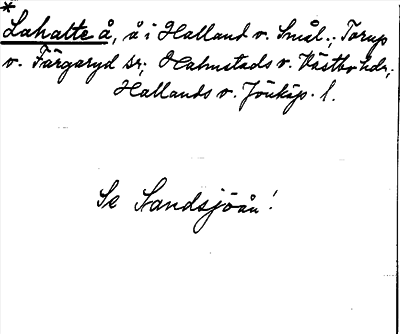 * Lahatte å, å i Halland v. Smål.; Torup
v. Färgaryd sr; Halmstads v. Västbo hdr;
Hallands v. Jönköp. l.
Se Sandsjöån!